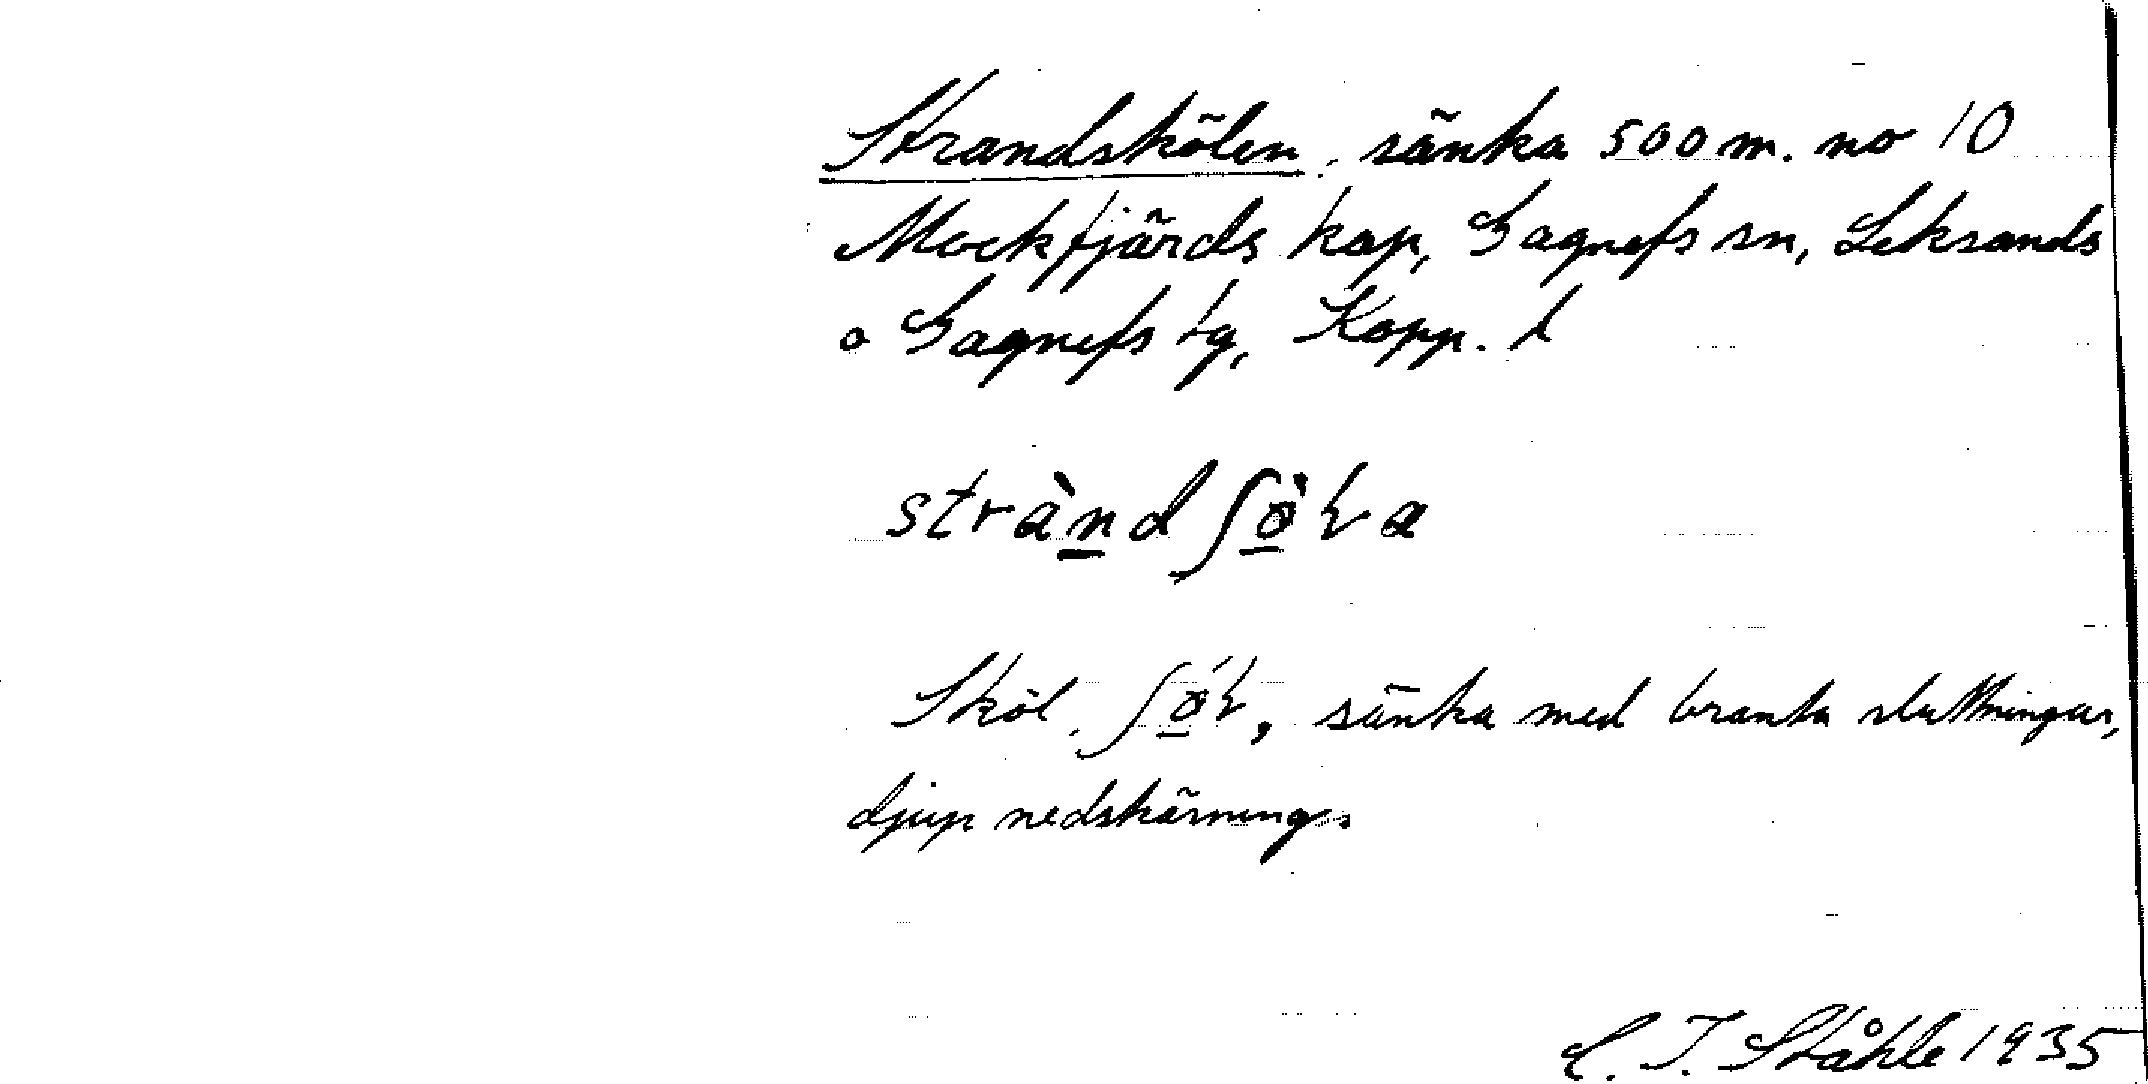 Strandskölen, sänka 500 m. no 10
Mockfjärds kap, Gagnefs sn, Leksands
o Gagnefs tg, Kopp. l
stràn̲dʃø̲̀ɽa
Sköl, ʃǿ̲ɽ, sänka med branta sluttningar,
djup nedskärning.
C. I. Ståhle 1935